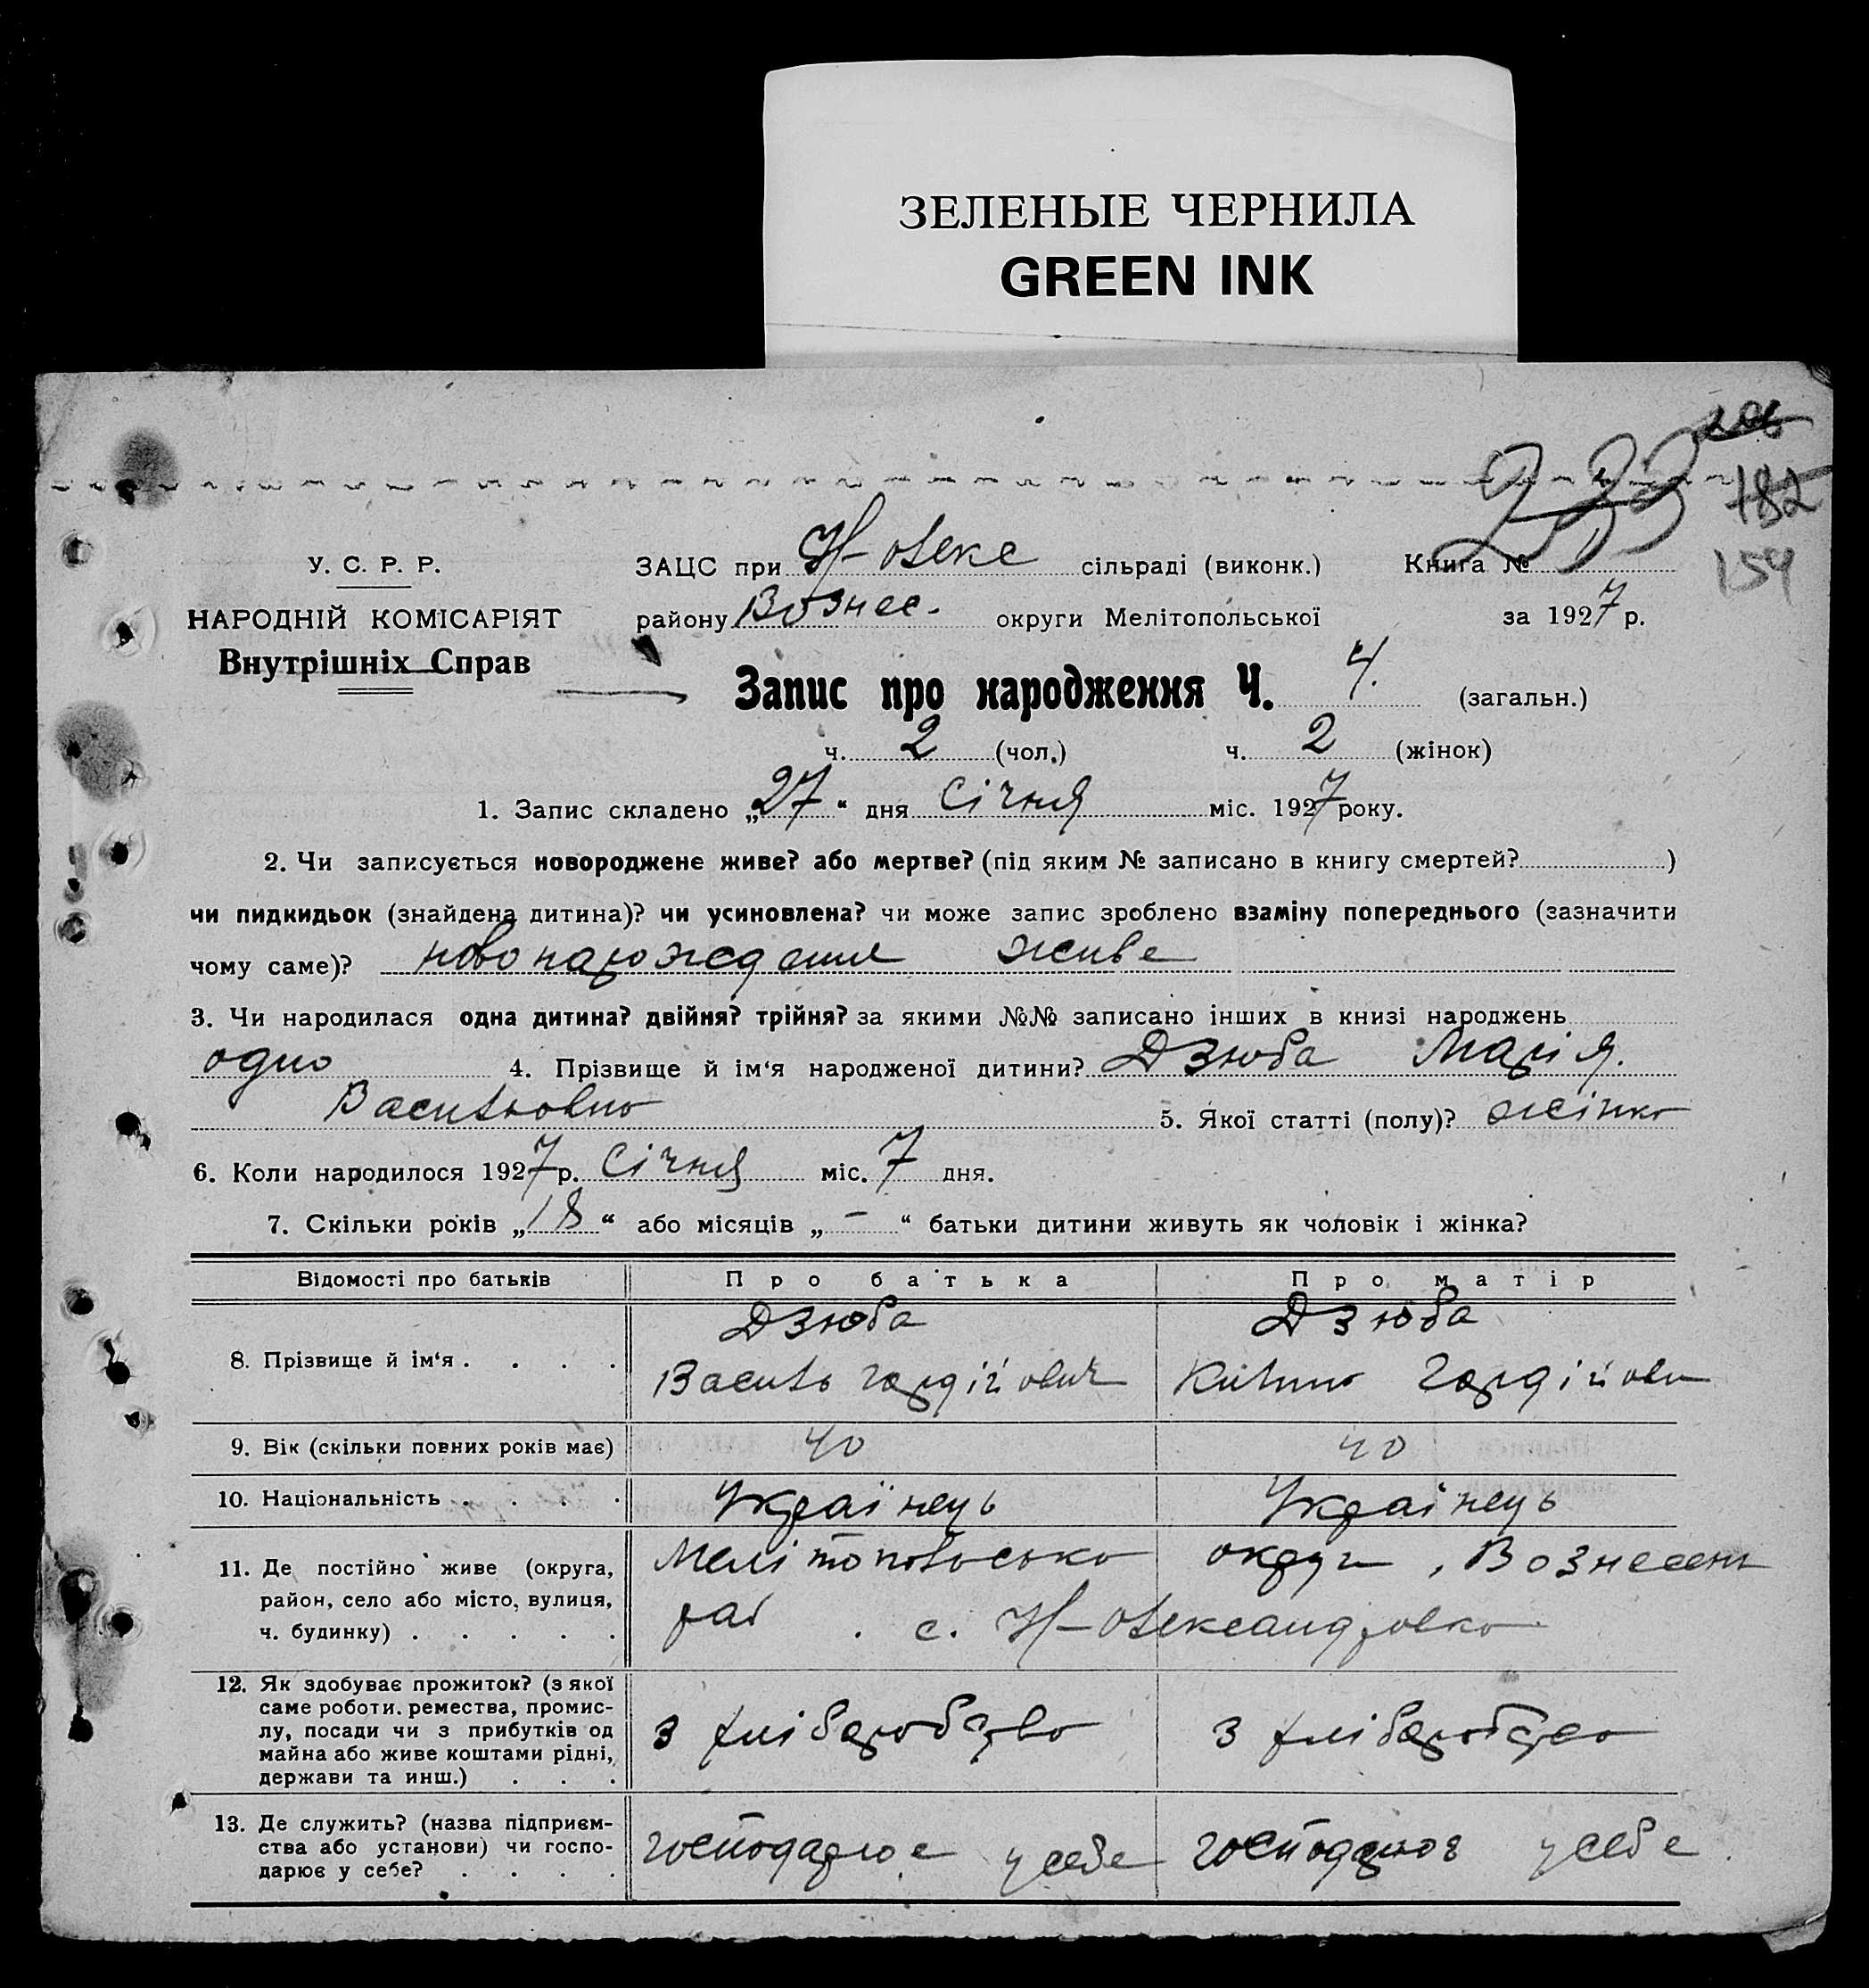 ЗЕЛЕНЫЕ ЧЕРНИЛА
GREEN INK
233
182
154
У. С. Р. Р.
НАРОДНІЙ КОМІСАРІЯТ
Внутрішніх Справ
ЗАЦС при Н-Олекс сільраді (виконк.) Книга №
району Вознес. округи Мелітопольської за 1927 р.
Запис про народження Ч. 4. (загальн.)
ч. 2 (чол.) ч. 2 (жінок)
1. Запис складено „27“ дня Січня міс. 1927 року.
2. Чи записується новороджене живе? або мертве? (під яким № записано в книгу смертей? )
чи пидкидьок (знайдена дитина)? чи усиновлена? чи може запис зроблено взаміну попереднього (зазначити
чому саме)? живе
3. Чи народилася одна дитина? двійня? трійня? за якими №№ записано інших в книзі народжень
одно 4. Прізвище й ім‘я народженої дитини? Дзюба Марія.
Васильовно 5. Якої статті (полу)? жінко
6. Коли народилося 1927 р. Січня міс. 7 дня.
7. Скільки років „18“ або місяців „-“ батьки дитини живуть як чоловік і жінка?
Відомості про батьків Про батька Про матір
8. Прізвище й ім‘я . . . . Дзюба Дзюба
Василь Гордійович Гордійовн
9. Вік (скільки повних років має) 40 40
10. Національність . . . . Українець Українець
11. Де постійно живе (округа, район, село або місто, вулиця, ч. будинку) . . . . . Мелітопольсько округи, Вознесен
рай . с. Н-Олександровко
12. Як здобуває прожиток? (з якої саме роботи. ремества, промислу, посади чи з прибутків од майна або живе коштами рідні, держави та инш.) . . . з хліборобство з хліборобство
13. Де служить? (назва підприємства або установи) чи господарює у себе? . . . . господарює у себе господарює у себе